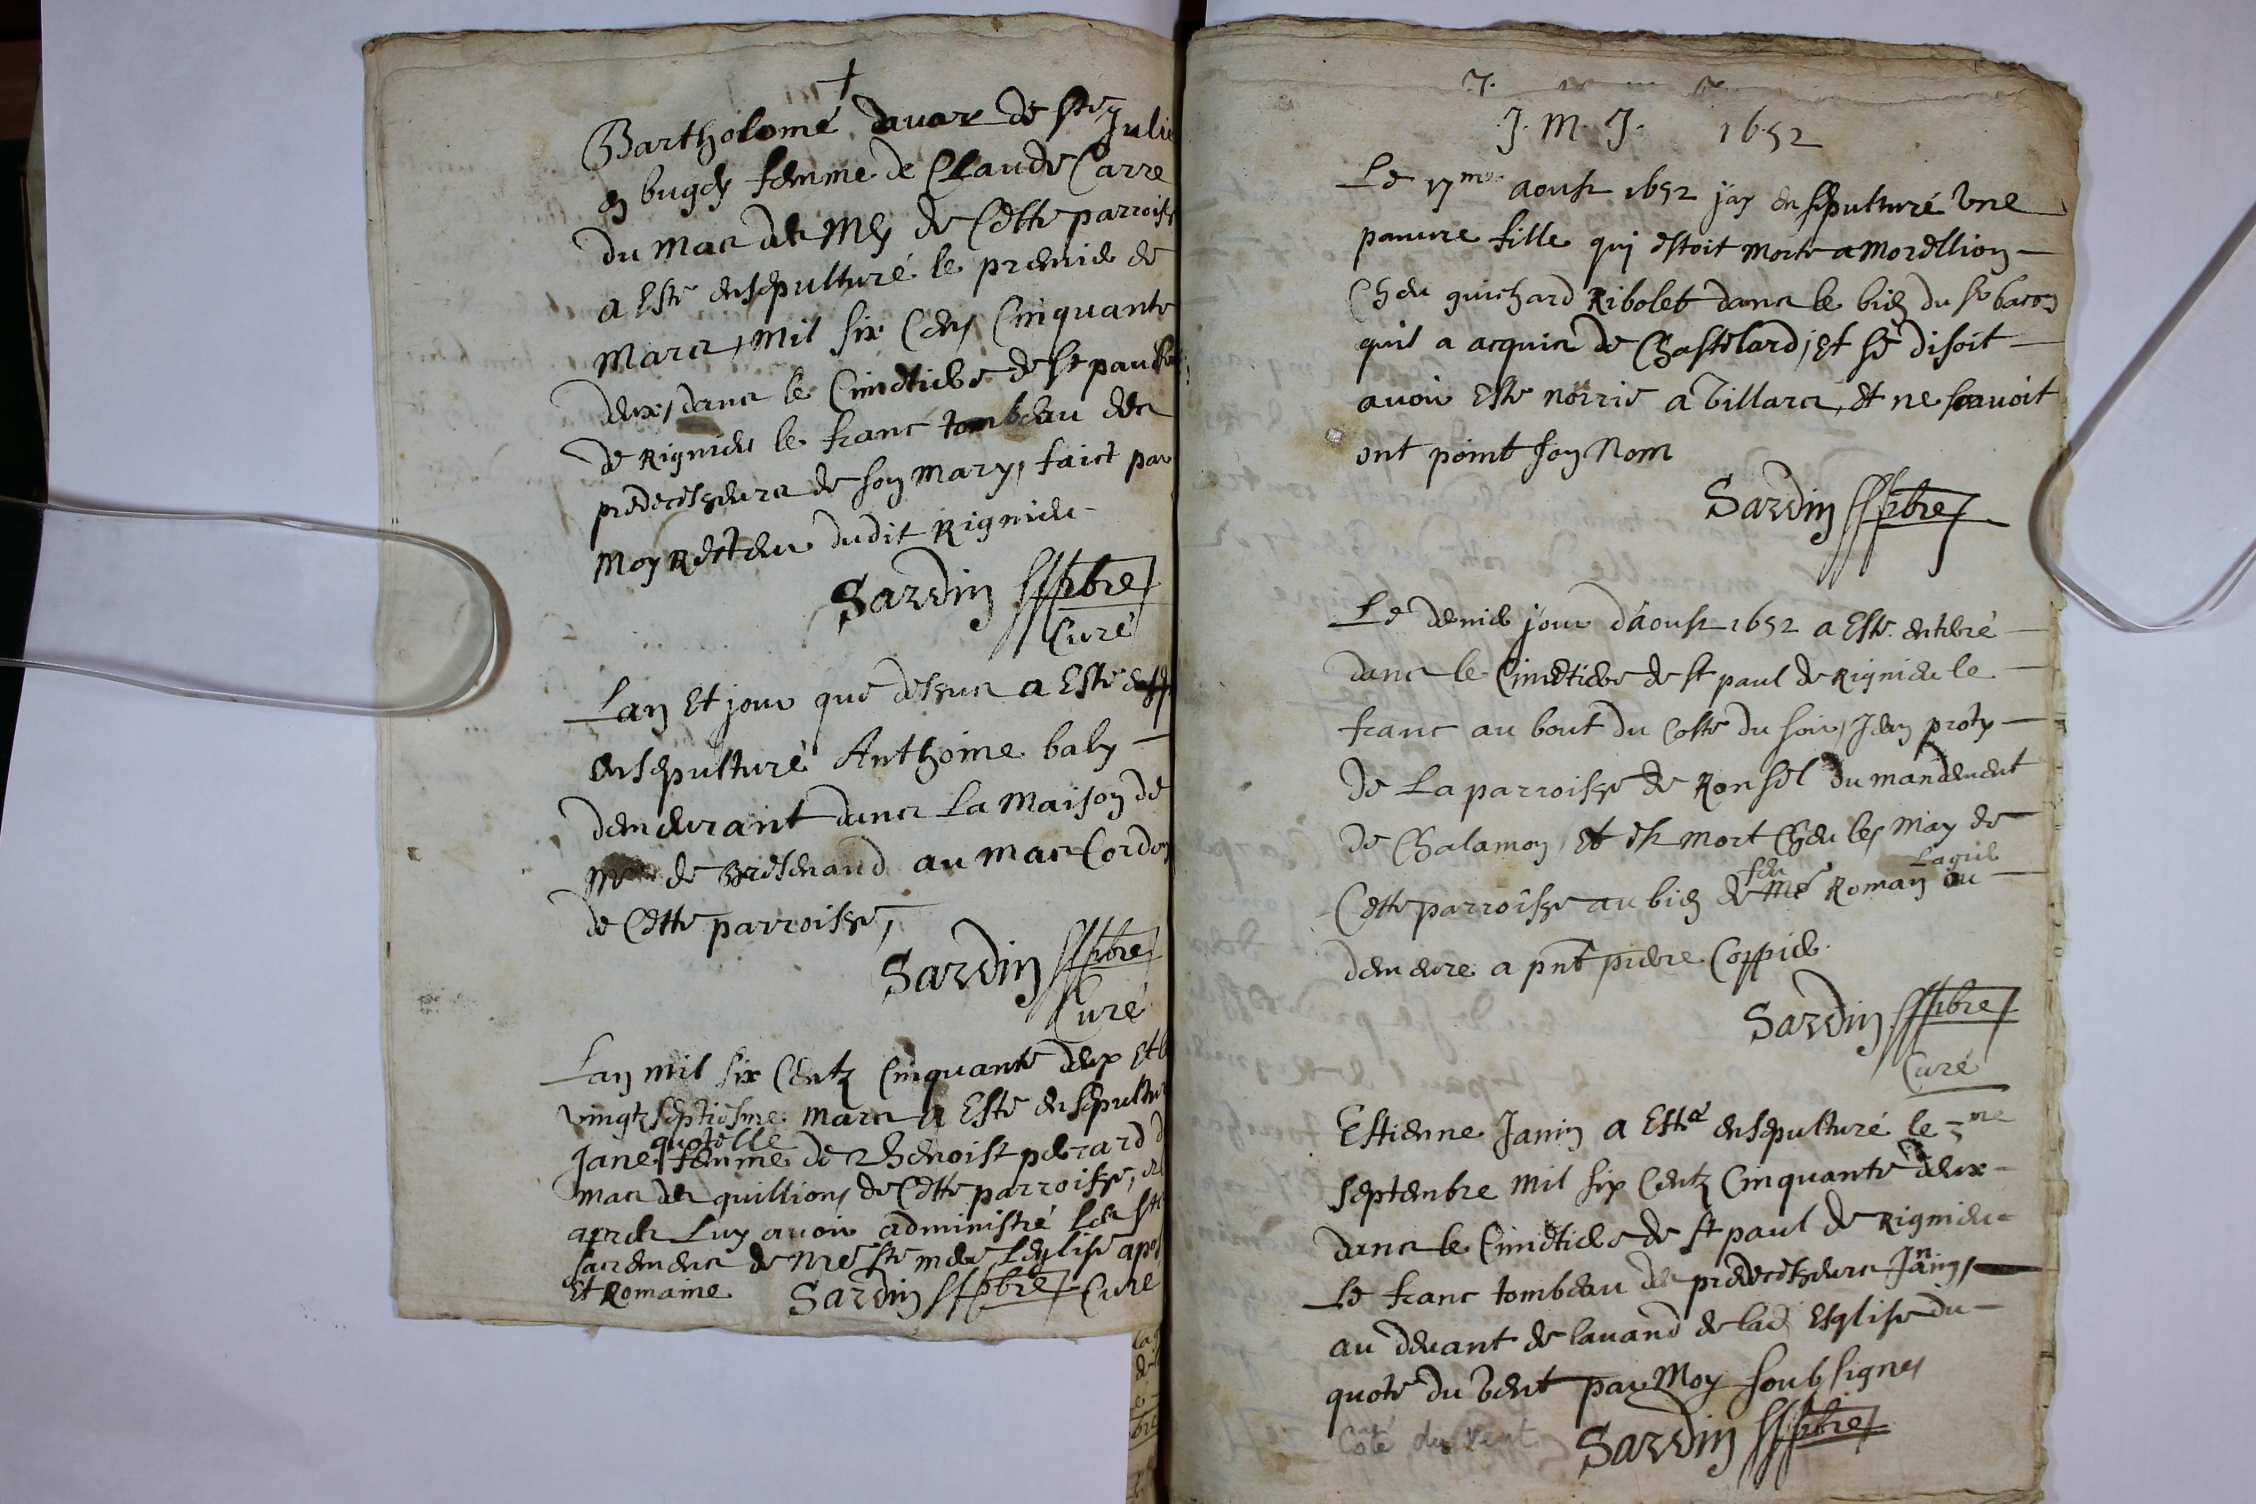 Bartholomé davar de Ste Julie
en bugey femme de Claude Carre
du mas des Mey de Cette parroisse
a Esté ensepulturé le premier de
Mars, mil six Cens Cinquante
deux, dans le Cimetiere de St paul
de Rignieu le franc tombeau des
predecesseurs de son mary, faict par
Moy Recteur dudit Rignieu
Sardin pbre
Curé
Lan Et jour que dessus a Esté
ensepulturé Anthoine baly
demeurant dans La Maison de
Mr de Bresenaud au mas Cordon
de Cette parroisse,
Sardin pbre
Curé
Lan mil six Centz Cinquante deux Et le
vingtseptiesme Mars a Esté ensepulturé
quotelle
Jane femme de Benoist perrard d
mas des quillions de Cette parroisse,
apres Luy avoir administré Les Sts
sacremens de nre Ste mere Leglise apos
Et Romaine Sardin pbre Curé
J. M. J. 1652
Le 17me aoust 1652 j'ay ensepulturé Une
pauvre fille qui estoit morte a Morellion
Cheu guichard Ribolet dans le bien du Sr baron
quil a acquis de Chastelard, Et se disoit
avoir Esté norrie a Villars, et ne scavoit
ont point son Nom
Sardin pbre
Le dernier jour d'aoust 1652 a Esté enterré
dans le Cimetiere de St paul de Rignieu le
franc au bout du Costé du soir, Jean proty
de La parroisse de Ronsel du mandement
de Chalamon, Et est mort Cheu les May de
feu Laquel
Cette parroisse au bien de Me Roman ou
demeure a pnt pierre Coppier
Sardin pbre
Curé
Estienne Janin a Esté ensepulturé le 5me
Septembre mil six Centz Cinquante deux
dans le Cimetiere de St paul de Rignieu
Le franc tombeau des predecesseurs Janin,
au devant de lavand de lad Esglise du
quoté du Vent par Moy soubsignes
Coté du Vent Sardin pbre